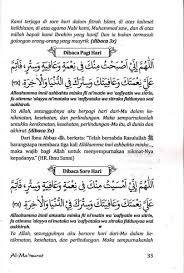 Kami terjaga di sore hari dalam fitrah Islam, di atas kalimat
keikhlasan, di atas agama Nabi kami, Muhammad saw., dan di atas
millah bapak kami Ibrahim yang hanif. Dan ia bukan termasuk
golongan orang-orang yang musyrik. (dibaca 3x)
Dibaca Pagi Hari
اَللّٰهُمَّ إِنِّيْ أَصْبَحْتُ مِنْكَ فِيْ نِعْمَةٍ وَعَافِيَةٍ وَسِتْرٍ، فَأَتِمَّ
عَلَيَّ نِعْمَتَكَ وَعَافِيَتَكَ وَسِتْرَكَ فِي الدُّنْيَا وَاْلآخِرَةِ (×٣)
Allaahumma innii ashbahtu minka fii ni'matin wa 'aafiyatin wa sitrin,
fa atimma 'alayya ni'mataka wa 'aafiyataka wa sitraka fiddunyaa wal-
aakhirah.
Ya Allah, sesungguhnya aku berpagi hari dari-Mu dalam ke-
nikmatan, kesehatan, dan perlindungan. Maka sempurnakanlah
untukku kenikmatan, kesehatan, dan perlindungan-Mu itu, di dunia
dan akhirat. (dibaca 3x)
Dari Ibnu Abbas berkata: "Telah bersabda Rasulullah
barangsiapa membaca tiga kali Allahumma inni ashbahtu minka...,
maka wajib bagi Allah untuk menyempurnakan nikmat-Nya
kepadanya." (HR. Ibnu Sunni)
Dibaca Sore Hari
اَللّٰهُمَّ إِنِّيْ أَمْسَيْتُ مِنْكَ فِيْ نِعْمَةٍ وَعَافِيَةٍ وَسِتْرٍ، فَأَتِمَّ
عَلَيَّ نِعْمَتَكَ وَعَافِيَتَكَ وَسِتْرَكَ فِي الدُّنْيَا وَاْلآخِرَةِ (×٣)
Allaahumma innii amsaitu minka fii ni'matin wa 'aafiyatin wa sitrin,
fa atimma 'alayya ni'mataka wa 'aafiyataka wa sitraka fiddunyaa wal
aakhirah.
Ya Allah, sesungguhnya aku bersore hari dari-Mu dalam ke-
nikmatan, kesehatan, dan perlindungan. Maka sempurnakanlah
Al-Ma'tsurat 33